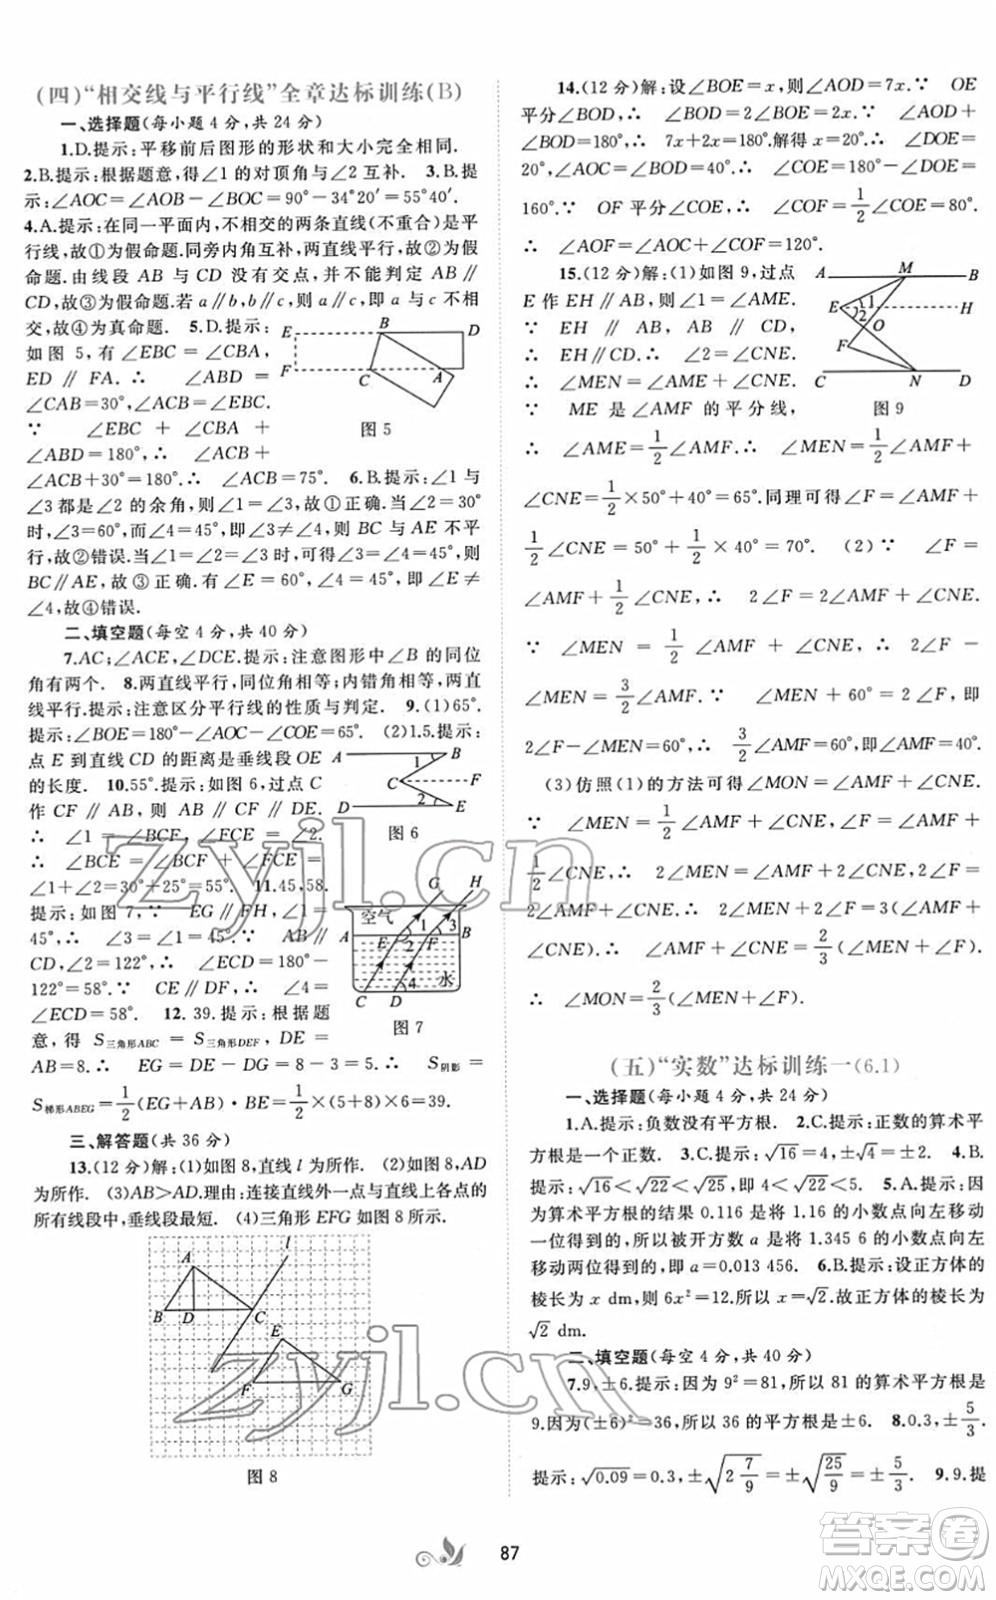 (四)“相交线与平行线”全章达标训练(B)
一、选择题(每小题4分,共24分)
1.D.提示:平移前后图形的形状和大小完全相同.
2.B.提示:根据题意,得∠1的对顶角与∠2互补. 3.B.提
示:∠AOC=∠AOB-∠BOC=90°-34°20′=55°40′.
4.A.提示:在同一平面内,不相交的两条直线(不重合)是平
行线,故①为假命题.同旁内角互补,两直线平行,故②为假
命题.由线段 AB 与 CD 没有交点,并不能判定 AB∥
CD,故③为假命题.若a∥b,b∥c,则a∥c,即a与c不相
交,故④为真命题. 5.D.提示:
如图 5,有∠EBC=∠CBA,
ED∥FA.∴ ∠CBA=
∠CAB=30°,∠ACB=∠EBC.
∵ ∠EBC+∠CBA+
∠ABD=180°,∴ ∠ACB+
∠ACB+30°=180°.∴ ∠ACB=75°. 6.B.提示:∠1与
∠3都是∠2的余角,则∠1=∠3,故①正确.当∠2=30°
时,∠3=60°,而∠4=45°,即∠3≠∠4,则 BC 与 AE 不平
行,故②错误.当∠1=∠2=∠3时,∠3=45°=∠4,则
BC∥AE,故③正确.有∠E=60°,∠4=45°,即∠E≠
∠4,故④错误.
E B D
F C A
图5
二、填空题(每空4分,共40分)
7.AC;∠ACE,∠DCE.提示:注意图形中∠B的同位
角有两个. 8.两直线平行,同位角相等;内错角相等,两直
线平行.提示:注意区分平行线的性质与判定. 9.(1)65°.
提示:∠BOE=180°-∠AOC-∠COE=65°. (2)1.5.提示:
点E到直线CD的距离是垂线段OE
的长度. 10.55°.提示:如图6,过点C
作 CF∥AB,则 CF∥AB∥DE.
∴ ∠1=∠BCF,∠FCE=∠2.
∴ ∠BCE=∠BCF+∠FCE=
∠1+∠2=30°+25°=55°. 11.45,58.
提示:如图7,∵ EG∥FH,∠1=
45°,∴ ∠3=∠1=45°.∵ AB∥
CD,∠2=122°,∴ ∠ECD=180°-
122°=58°.∵ CE∥DF,∴ ∠4=
∠ECD=58°. 12. 39.提示:根据题
意,得 S三角形ABC = S三角形DEF, DE=
AB=8.∴ EG=DE-DG=8-3=5.∴ S阴影=
S梯形ABEG=1/2(EG+AB)·BE=1/2×(5+8)×6=39.
A B
1
C F
2
D E
图6
G H
空气
A 1 3 B
E 2 F
4 水
C D
图7
三、解答题(共36分)
13.(12分)解:(1)如图8,直线l为所作. (2)如图8,AD
为所作. (3)AB>AD.理由:连接直线外一点与直线上各点的
所有线段中,垂线段最短. (4)三角形EFG如图8所示.
l
A
B D C
E
F G
图8
14.(12分)解:设∠BOE=x,则∠AOD=7x.∵ OE
平分∠BOD,∴ ∠BOD=2∠BOE=2x.∵ ∠AOD+
∠BOD=180°,∴ 7x+2x=180°.解得x=20°.∴ ∠DOE=
20°,∠AOC=∠BOD=40°.∴ ∠COE=180°-∠DOE=
160°.∵ OF平分∠COE,∴ ∠COF=1/2∠COE=80°.
∴ ∠AOF=∠AOC+∠COF=120°.
15.(12分)解:(1)如图9,过点
E作EH∥AB,则∠1=∠AME.
∵ EH∥AB, AB∥CD, ∴
EH∥CD.∴ ∠2=∠CNE.
∴ ∠MEN=∠AME+∠CNE.
∵ ME 是∠AMF 的平分线,
∴ ∠AME=1/2∠AMF.∴ ∠MEN=1/2∠AMF+
∠CNE=1/2×50°+40°=65°.同理可得∠F=∠AMF+
1/2∠CNE=50°+1/2×40°=70°. (2)∵ ∠F=
∠AMF+1/2∠CNE,∴ 2∠F=2∠AMF+∠CNE.
∵ ∠MEN=1/2∠AMF+∠CNE,∴ 2∠F-
∠MEN=3/2∠AMF.∵ ∠MEN+60°=2∠F,即
2∠F-∠MEN=60°,∴ 3/2∠AMF=60°.∴ ∠AMF=40°.
(3)仿照(1)的方法可得∠MON=∠AMF+∠CNE.
∵ ∠MEN=1/2∠AMF+∠CNE,∠F=∠AMF+
1/2∠CNE,∴ 2∠MEN=∠AMF+2∠CNE,2∠F=
2∠AMF+∠CNE.∴ 2∠MEN+2∠F=3(∠AMF+
∠CNE).∴ ∠AMF+∠CNE=2/3(∠MEN+∠F).
∴ ∠MON=2/3(∠MEN+∠F).
A M B
E 1 H
2
O
F
C N D
图9
(五)“实数”达标训练一(6.1)
一、选择题(每小题4分,共24分)
1.A.提示:负数没有平方根. 2.C.提示:正数的算术平
方根大于0. 3.C.提示:±√16=±4,±√4=±2. 4.B.
提示:√16<√22<√25,即4<√22<5. 5.A.提示:因
为算术平方根的结果0.116是将1.16的小数点向左移动一
位得到的,故被开方数a是将1.3456的小数点向左
移动两位得到的,即a=0.013 456. 6.B.提示:设正方体的
棱长为x dm,则6x²=12,∴ x=√2.故正方体的棱长为
√2 dm.
二、填空题(每空4分,共40分)
7.9,±6.提示:因为9²=81,所以81的算术平方根是
9.因为(±6)²=36,所以36的平方根是±6. 8.0.3,±5/3.
提示:√0.09=0.3,±√(2 7/9)=±√(25/9)=±5/3. 9.9.提
87
zyjl.cn
zyjl.cn
答案圈
MXQE.COM